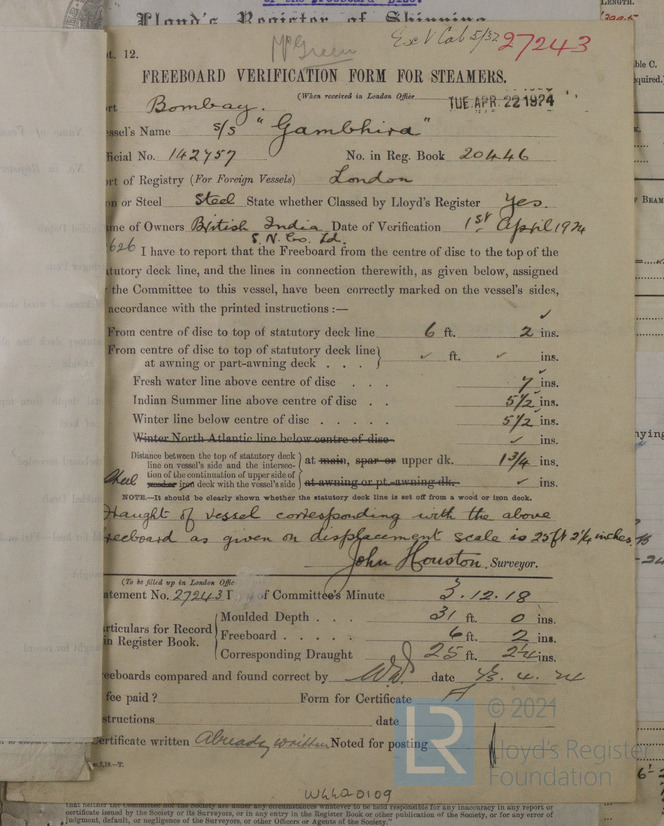 of the Freeboard Disc.
Lloyd's Register of Shipping
McGreen
27243
t. 12.
FREEBOARD VERIFICATION FORM FOR STEAMERS.
(When received in London Office
TUE. APR. 22 1924
ort Bombay.
essel's Name s/s "Gambhira"
ficial No. 142757 No. in Reg. Book 20446
ort of Registry (For Foreign Vessels) London
on or Steel Steel State whether Classed by Lloyd's Register Yes.
me of Owners British India Date of Verification 1st April 1924
S. N. Co. Ld.
626 I have to report that the Freeboard from the centre of disc to the top of the
tutory deck line, and the lines in connection therewith, as given below, assigned
the Committee to this vessel, have been correctly marked on the vessel's sides,
accordance with the printed instructions :—
From centre of disc to top of statutory deck line 6 ft. 2 ins.
From centre of disc to top of statutory deck line
at awning or part-awning deck . . . ft. ins.
Fresh water line above centre of disc . . . 7 ins.
Indian Summer line above centre of disc . . 5½ ins.
Winter line below centre of disc . . . . . 5½ ins.
Winter North Atlantic line below centre of disc ins.
Distance between the top of statutory deck
line on vessel's side and the intersec-
tion of the continuation of upper side of
Steel wooden iron deck with the vessel's side
at main, spar or upper dk. 1¾ ins.
at awning or pt.-awning dk. ins.
NOTE.—It should be clearly shown whether the statutory deck line is set off from a wood or iron deck.
raught of vessel corresponding with the above
reeboard as given on displacement scale is 25 ft 2¼ inches.
John Houston, Surveyor.
(To be filled up in London Offic
atement No. 27243 of Committee's Minute 3.12.18
articulars for Record
in Register Book.
Moulded Depth . . . 31 ft. 0 ins.
Freeboard . . . . . 6 ft. 2 ins.
Corresponding Draught 25 ft. 2¼ ins.
eeboards compared and found correct by date
fee paid ? Form for Certificate
structions date
ertificate written Already written Noted for posting
© 2021
LR
Lloyd's Register
Foundation
W442-0109
that neither the Committee nor the Society are under any circumstances whatever to be held responsible for any inaccuracy in any report or
certificate issued by the Society or its Surveyors, or in any entry in the Register Book or other publication of the Society, or for any error of
judgment, default, or negligence of the Surveyors, or other Officers or Agents of the Society."
LENGTH.
ble C.
quired.)
BEAM